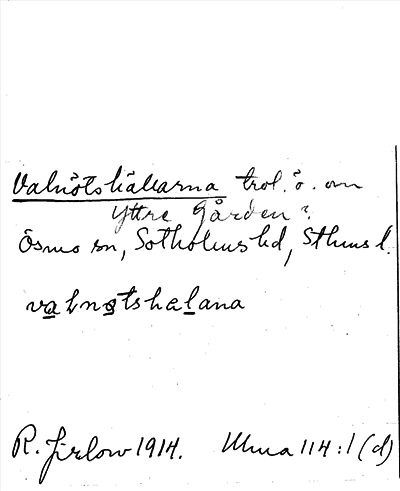 Valnötshällarna trol. ö. om
Yttre Gården?
Ösmo sn, Sotholms hd, Sthms l.
valnøtshælana
R. Jirlow 1914. Uuna 114:1 (d)